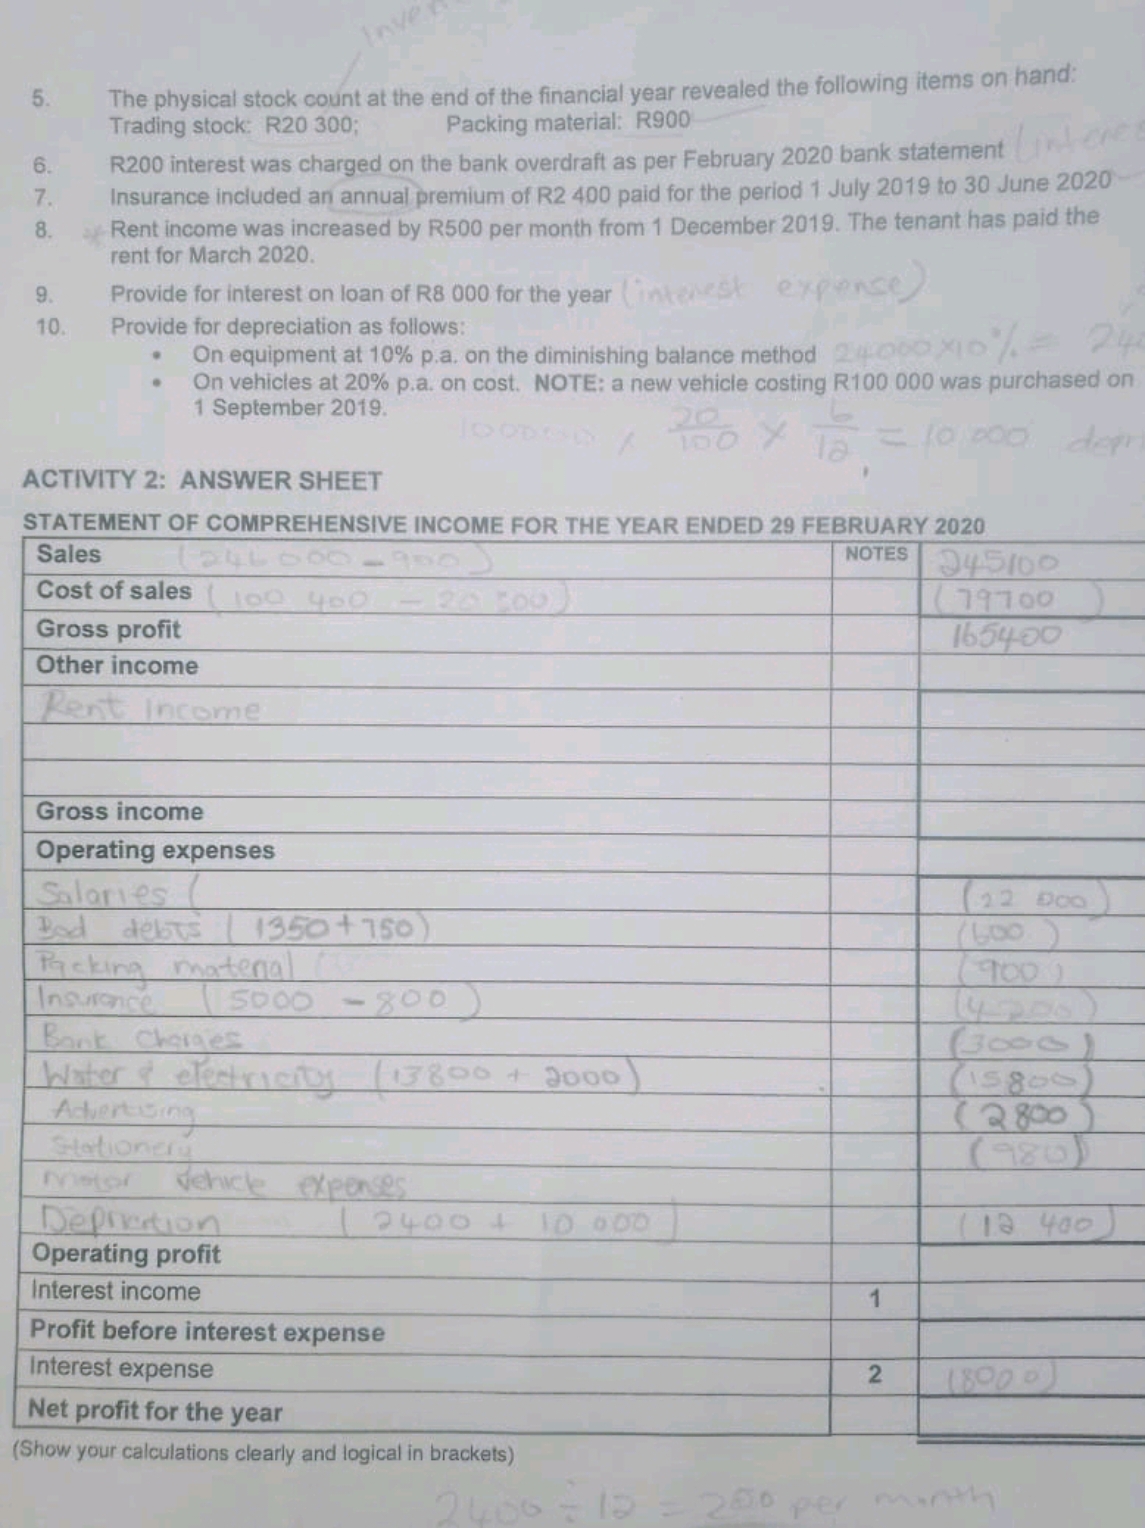 5. The physical stock count at the end of the financial year revealed the following items on hand:
Trading stock: R20 300; Packing material: R900
6. R200 interest was charged on the bank overdraft as per February 2020 bank statement
7. Insurance included an annual premium of R2 400 paid for the period 1 July 2019 to 30 June 2020
8. Rent income was increased by R500 per month from 1 December 2019. The tenant has paid the
rent for March 2020.
9. Provide for interest on loan of R8 000 for the year (interest expense)
10. Provide for depreciation as follows:
• On equipment at 10% p.a. on the diminishing balance method 24000 x10% =
• On vehicles at 20% p.a. on cost. NOTE: a new vehicle costing R100 000 was purchased on
1 September 2019.
x 20/100 x 6/12 = 10 000
ACTIVITY 2: ANSWER SHEET
STATEMENT OF COMPREHENSIVE INCOME FOR THE YEAR ENDED 29 FEBRUARY 2020
Sales (246000 - 900) NOTES 245100
Cost of sales (100 400 - ) (79700)
Gross profit 165400
Other income
Rent income
Gross income
Operating expenses
Salaries ( (22 000)
Bad debts (1350+750) (600)
Packing material (900)
Insurance (5000 - 800) (4200)
Bank Charges (3000)
Water & electricity (13800 + 2000) (15800)
Advertising (2800)
Stationery (980)
Motor Vehicle expenses
(2400 + 10 000) (12 400)
Operating profit
Interest income 1
Profit before interest expense
Interest expense 2 (8000)
Net profit for the year
(Show your calculations clearly and logical in brackets)
2400 ÷ 12 = 200 per month